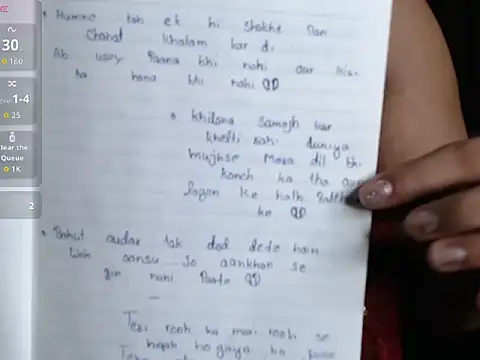 30
160
1-4
25
Clear the
Queue
1K
2
Humne toh ek hi shakhs par
Chahat khatam kar di
Ab usey Paana bhi nahi aur kisi
ka hona bhi nahi
Khilona samajh kar
khelti rahi duniya
mujhse mera dil bhi
kanch ka tha aur
logon ke hath Patthar
ke
Bahut andar tak dard dete hain
Woh aansu Jo aankhon se
gir nahi Paate
Teri rooh ka meri rooh se
nikah ho gaya ho jaise